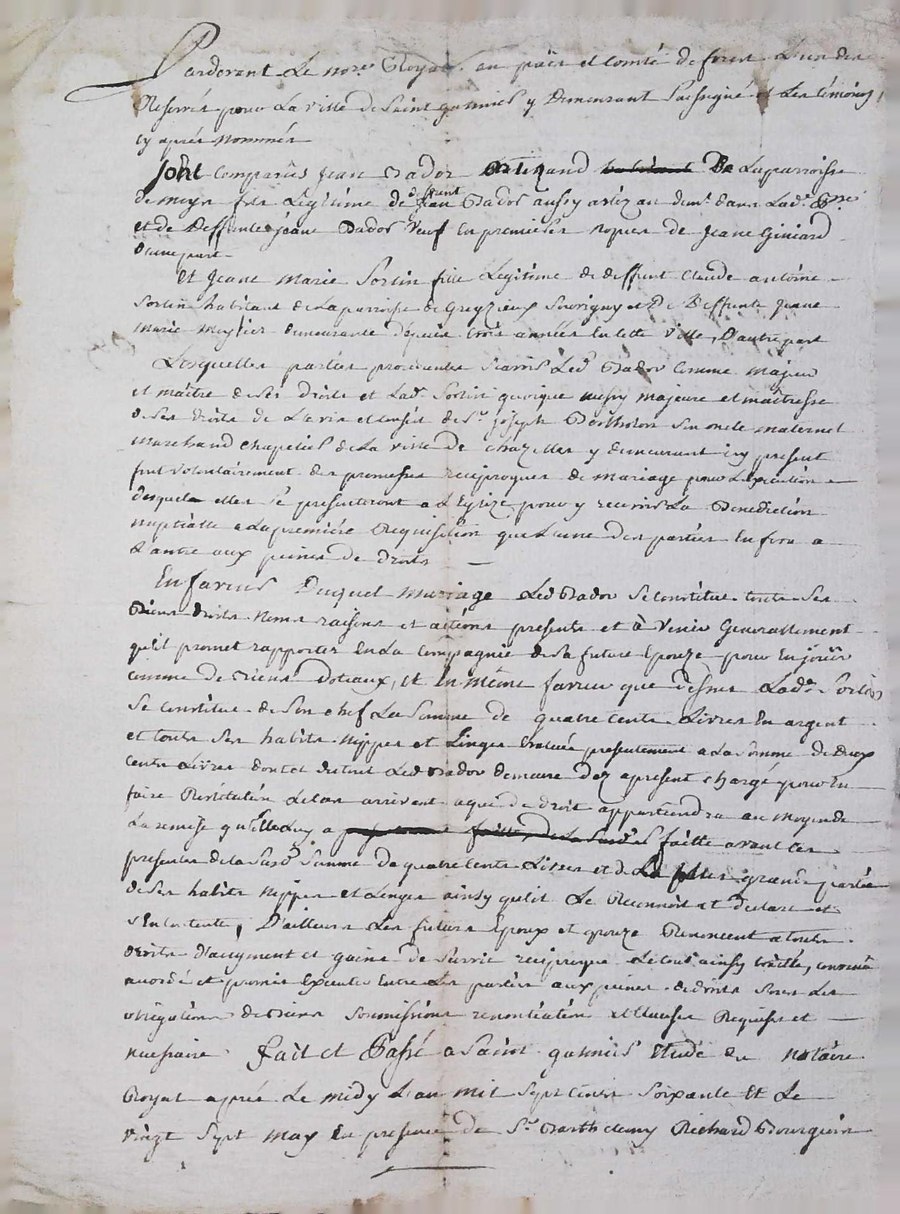 Pardevant Le nore Royal au païs et Comté de forest L'un des
Reservés pour La ville de Saint galmier y Demeurant Soussigné et Les temoins
cy après Nommés
sont Comparus Jean Bador De Laparroisse
de meys fils Légitime de deffunt Jean Bador aussy demt dans Lade
et de Deffunte jeane Bador Veuf En premieres Nopces de Jeane Giniard
d'une part
Et Jeane Marie Sortin fille Legitime de deffunt Claude antoine
Sortin habitant de Laparroisse de Grezieux Souvigny et De Deffunte Jeane
Marie Meysier demeurante depuis trois années En cette Ville, D'autre part
Lesquelles parties procedantes Sçavoir Led Bador Comme Majeur
et maître de ses droits et Lade Sortin quoique aussy majeure et maîtresse
de ses droits de L'avis et Conseil de Sr joseph Bertholon Son oncle maternel
Marchand chapelier de La ville de chazelles y demeurant icy present
font volontairement des promesses réciproques de Mariage pour L'execution
desqueles elles se presenteront a L'Eglize pour y recevoir La Benediction
nuptialle a La premiére Requisition que L'une des parties En fera a
L'autre aux peines de droits
En faveur Duquel mariage Led Badon se constitue touts ses
Biens droits Noms raisons et actions presents et à Venir Generallement
qu'il promet rapporter En La Compagnie de sa future Epouze pour En joüir
comme de Biens dotaux, et En même faveur que dessus Lade Sortin
Se Constitue de Son chef La Somme de quatre Cents Livres En argent
et touts Ses habits Nippes et Linges Evalués presentement a La somme de deux
Cents Livres dont et du tout Led Badon demeure dez apresent chargé pour En
faire Restitution Le Cas arrivant aqui de droit appartiendra au Moyen de
La remise qu'elle Luy a faitte avant Ces
presentes de La Susd Somme de quatre Cents Livres et de La plus grande partie
de Ses habits Nippes et Linges ainsy qu'il Le Reconnoit et declare et
s'En Contente, D'ailleurs Les futurs Epoux et Epouze Renoncent a touts
droits d'augment et gains de Survie reciproque Le tout ainsy traitté, convenu
accordé et promis Executer Entre Les parties aux peines de droits sous Les
obligations de Biens Soumissions renontiations et Clauses Requises et
necessaire. fait et Passé a Saint galmier Etude du Notaire
Royal après Le midy L'an mil Sept Cents Soixante Et Le
vingt Sept May En presence de Sr Barthelemy Richard Bourgeois